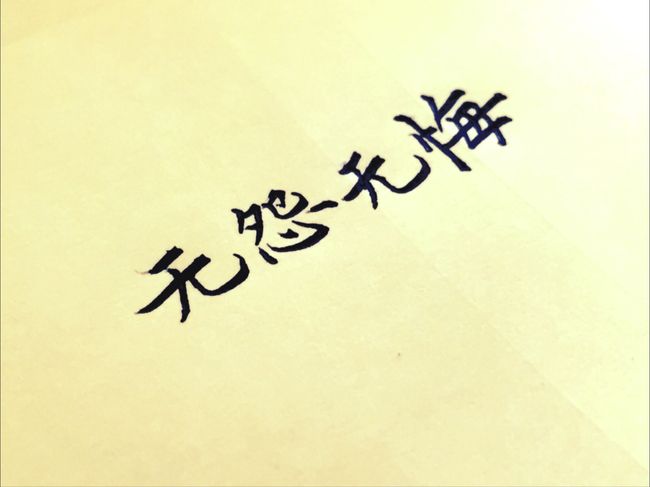 无怨无悔